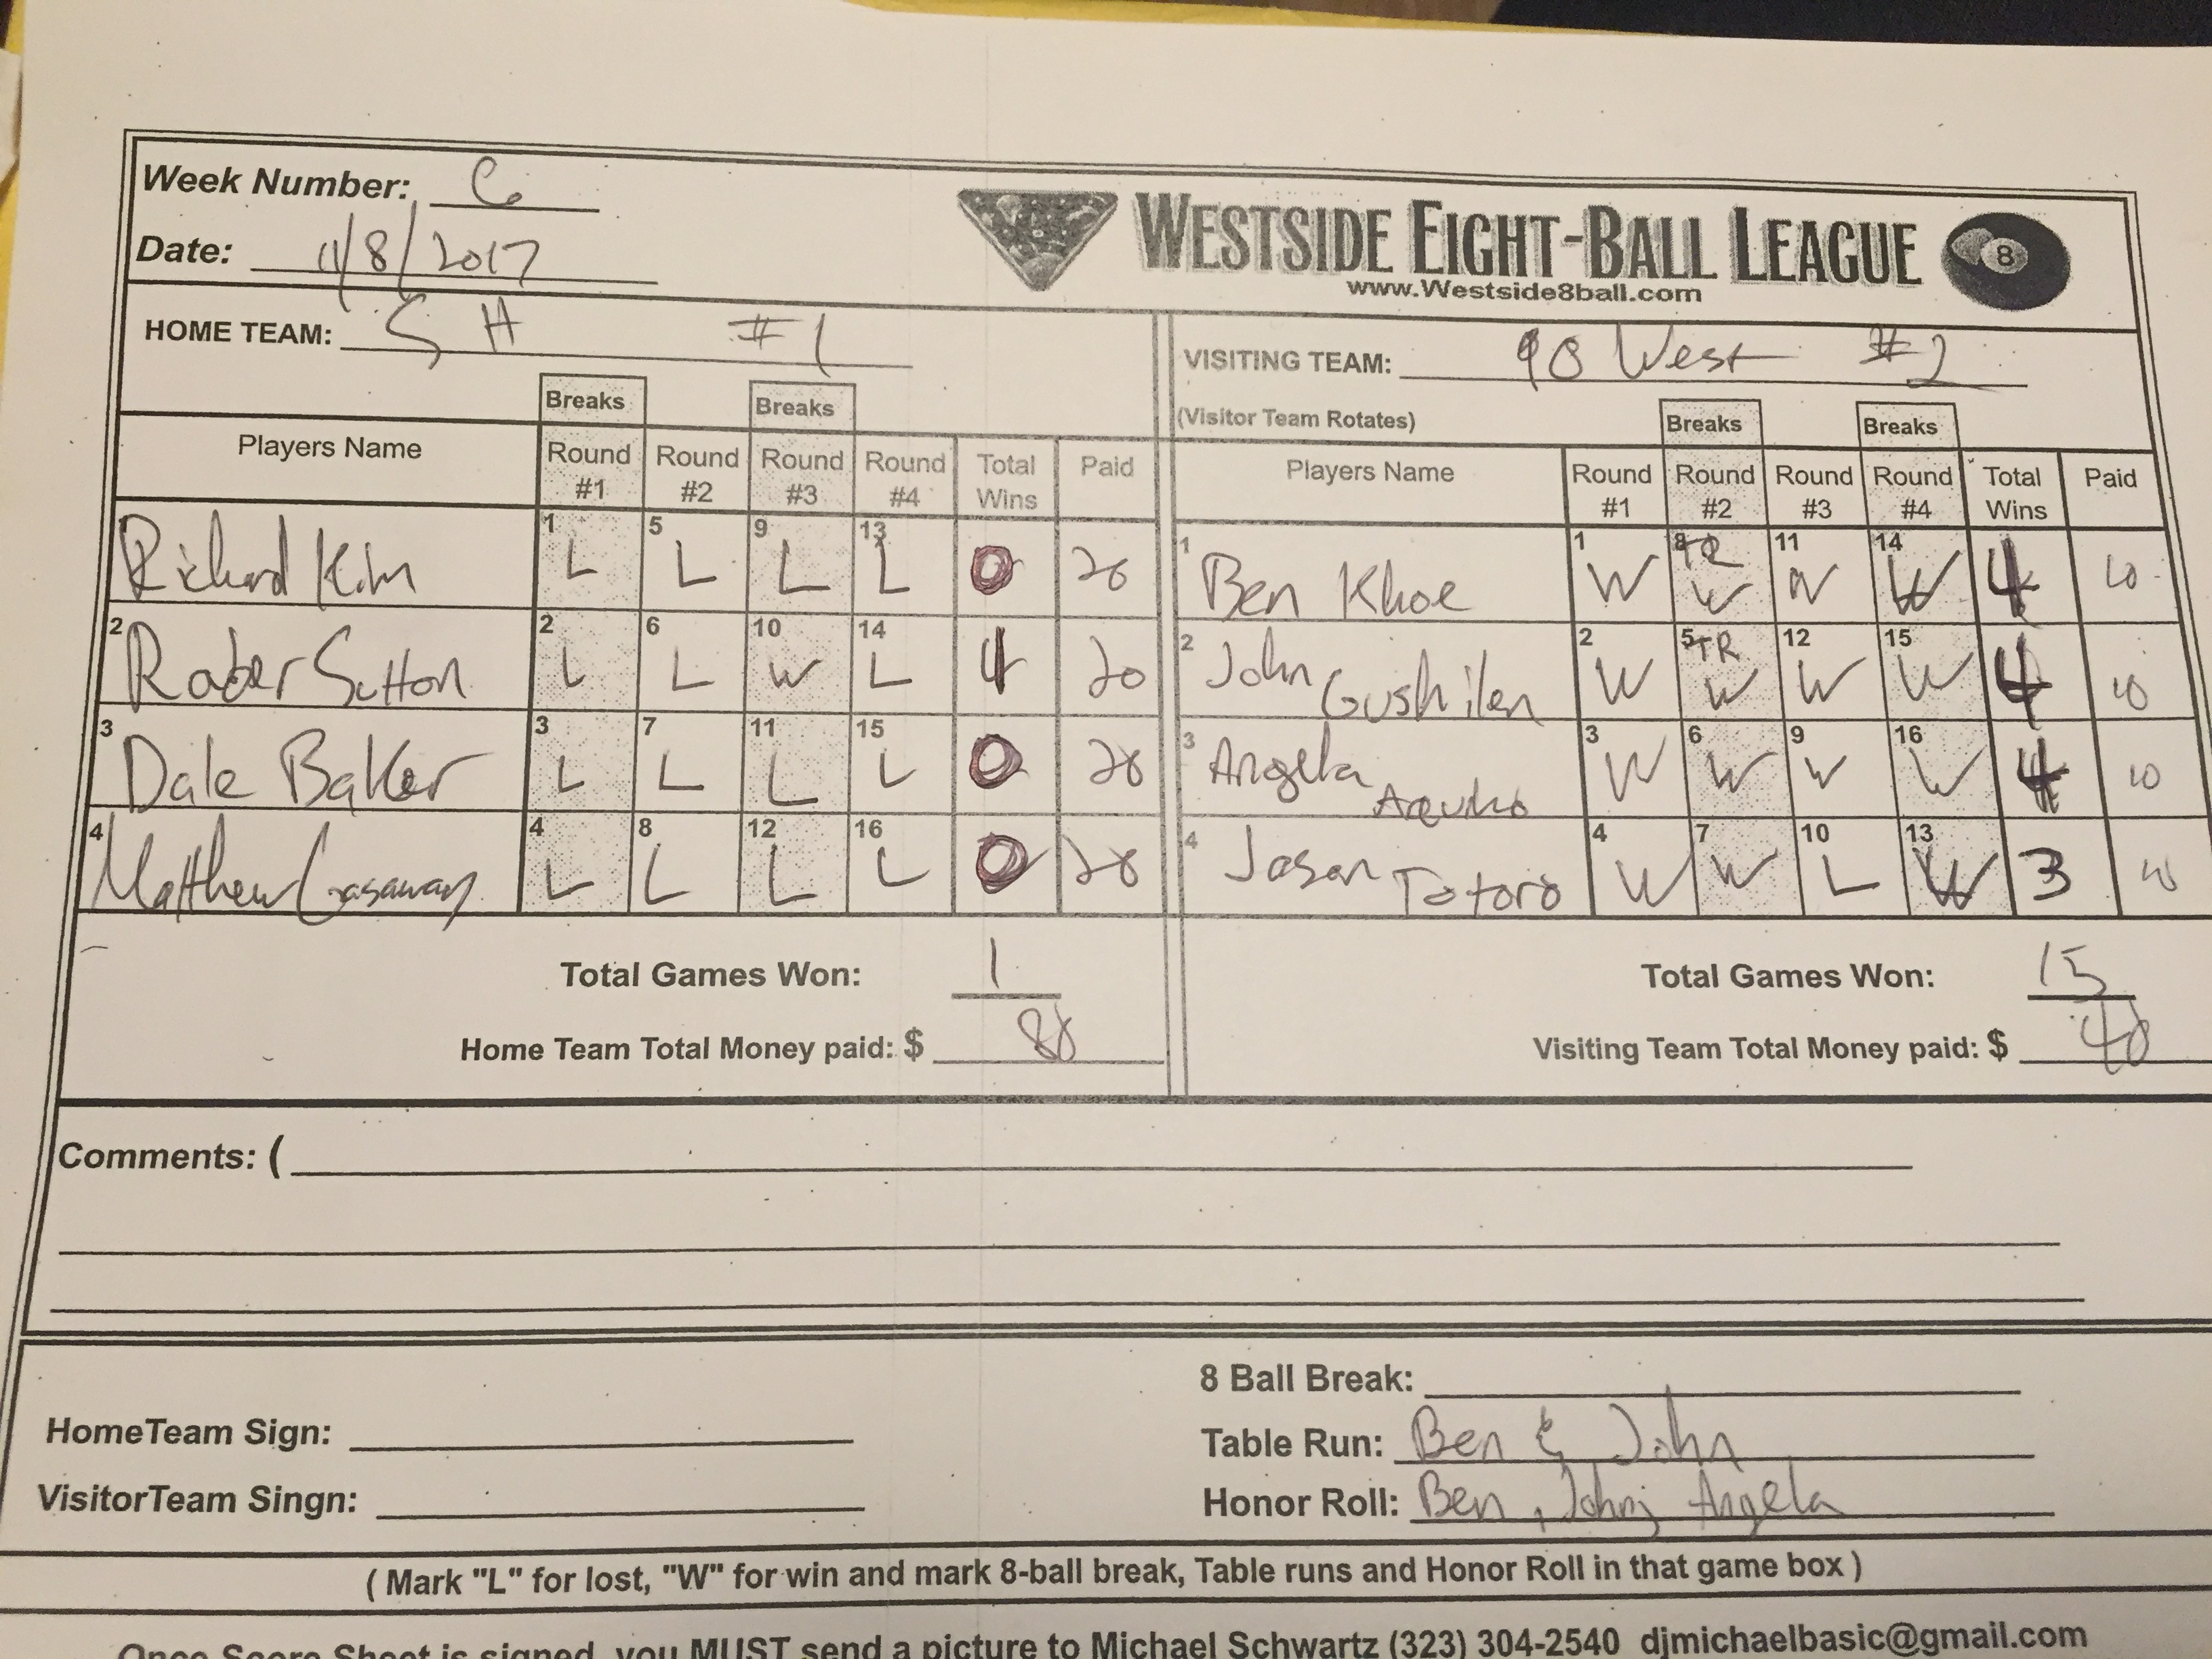 Week Number: 6
Date: 11/8/2017
WESTSIDE EIGHT-BALL LEAGUE 8
www.Westside8ball.com
HOME TEAM: SH #1
VISITING TEAM: 90 West #2
(Visitor Team Rotates)
Breaks Breaks Breaks Breaks
Players Name Round #1 Round #2 Round #3 Round #4 Total Wins Paid Players Name Round #1 Round #2 Round #3 Round #4 Total Wins Paid
1 Richard Kim 1 L 5 L 9 L 13 L 0 20 1 Ben Khoe 1 W 8 TR W 11 W 14 W 4 10
2 Sutton 2 L 6 L 10 W 14 L 20 2 John Gushiken 2 W 5 TR W 12 W 15 W 4 10
3 Dale Baker 3 L 7 L 11 L 15 L 0 20 3 Angela 3 W 6 W 9 W 16 W 4 10
4 Matthew Gasaway 4 L 8 L 12 L 16 L 0 20 4 Jason Totoro 4 W 7 W 10 L 13 W 3 10
Total Games Won: 1 Total Games Won: 15
Home Team Total Money paid: $ 80 Visiting Team Total Money paid: $ 40
Comments: (
8 Ball Break:
HomeTeam Sign: Table Run: Ben & John
VisitorTeam Singn: Honor Roll: Ben, John, Angela
( Mark "L" for lost, "W" for win and mark 8-ball break, Table runs and Honor Roll in that game box )
Once Score Sheet is signed, you MUST send a picture to Michael Schwartz (323) 304-2540 djmichaelbasic@gmail.com